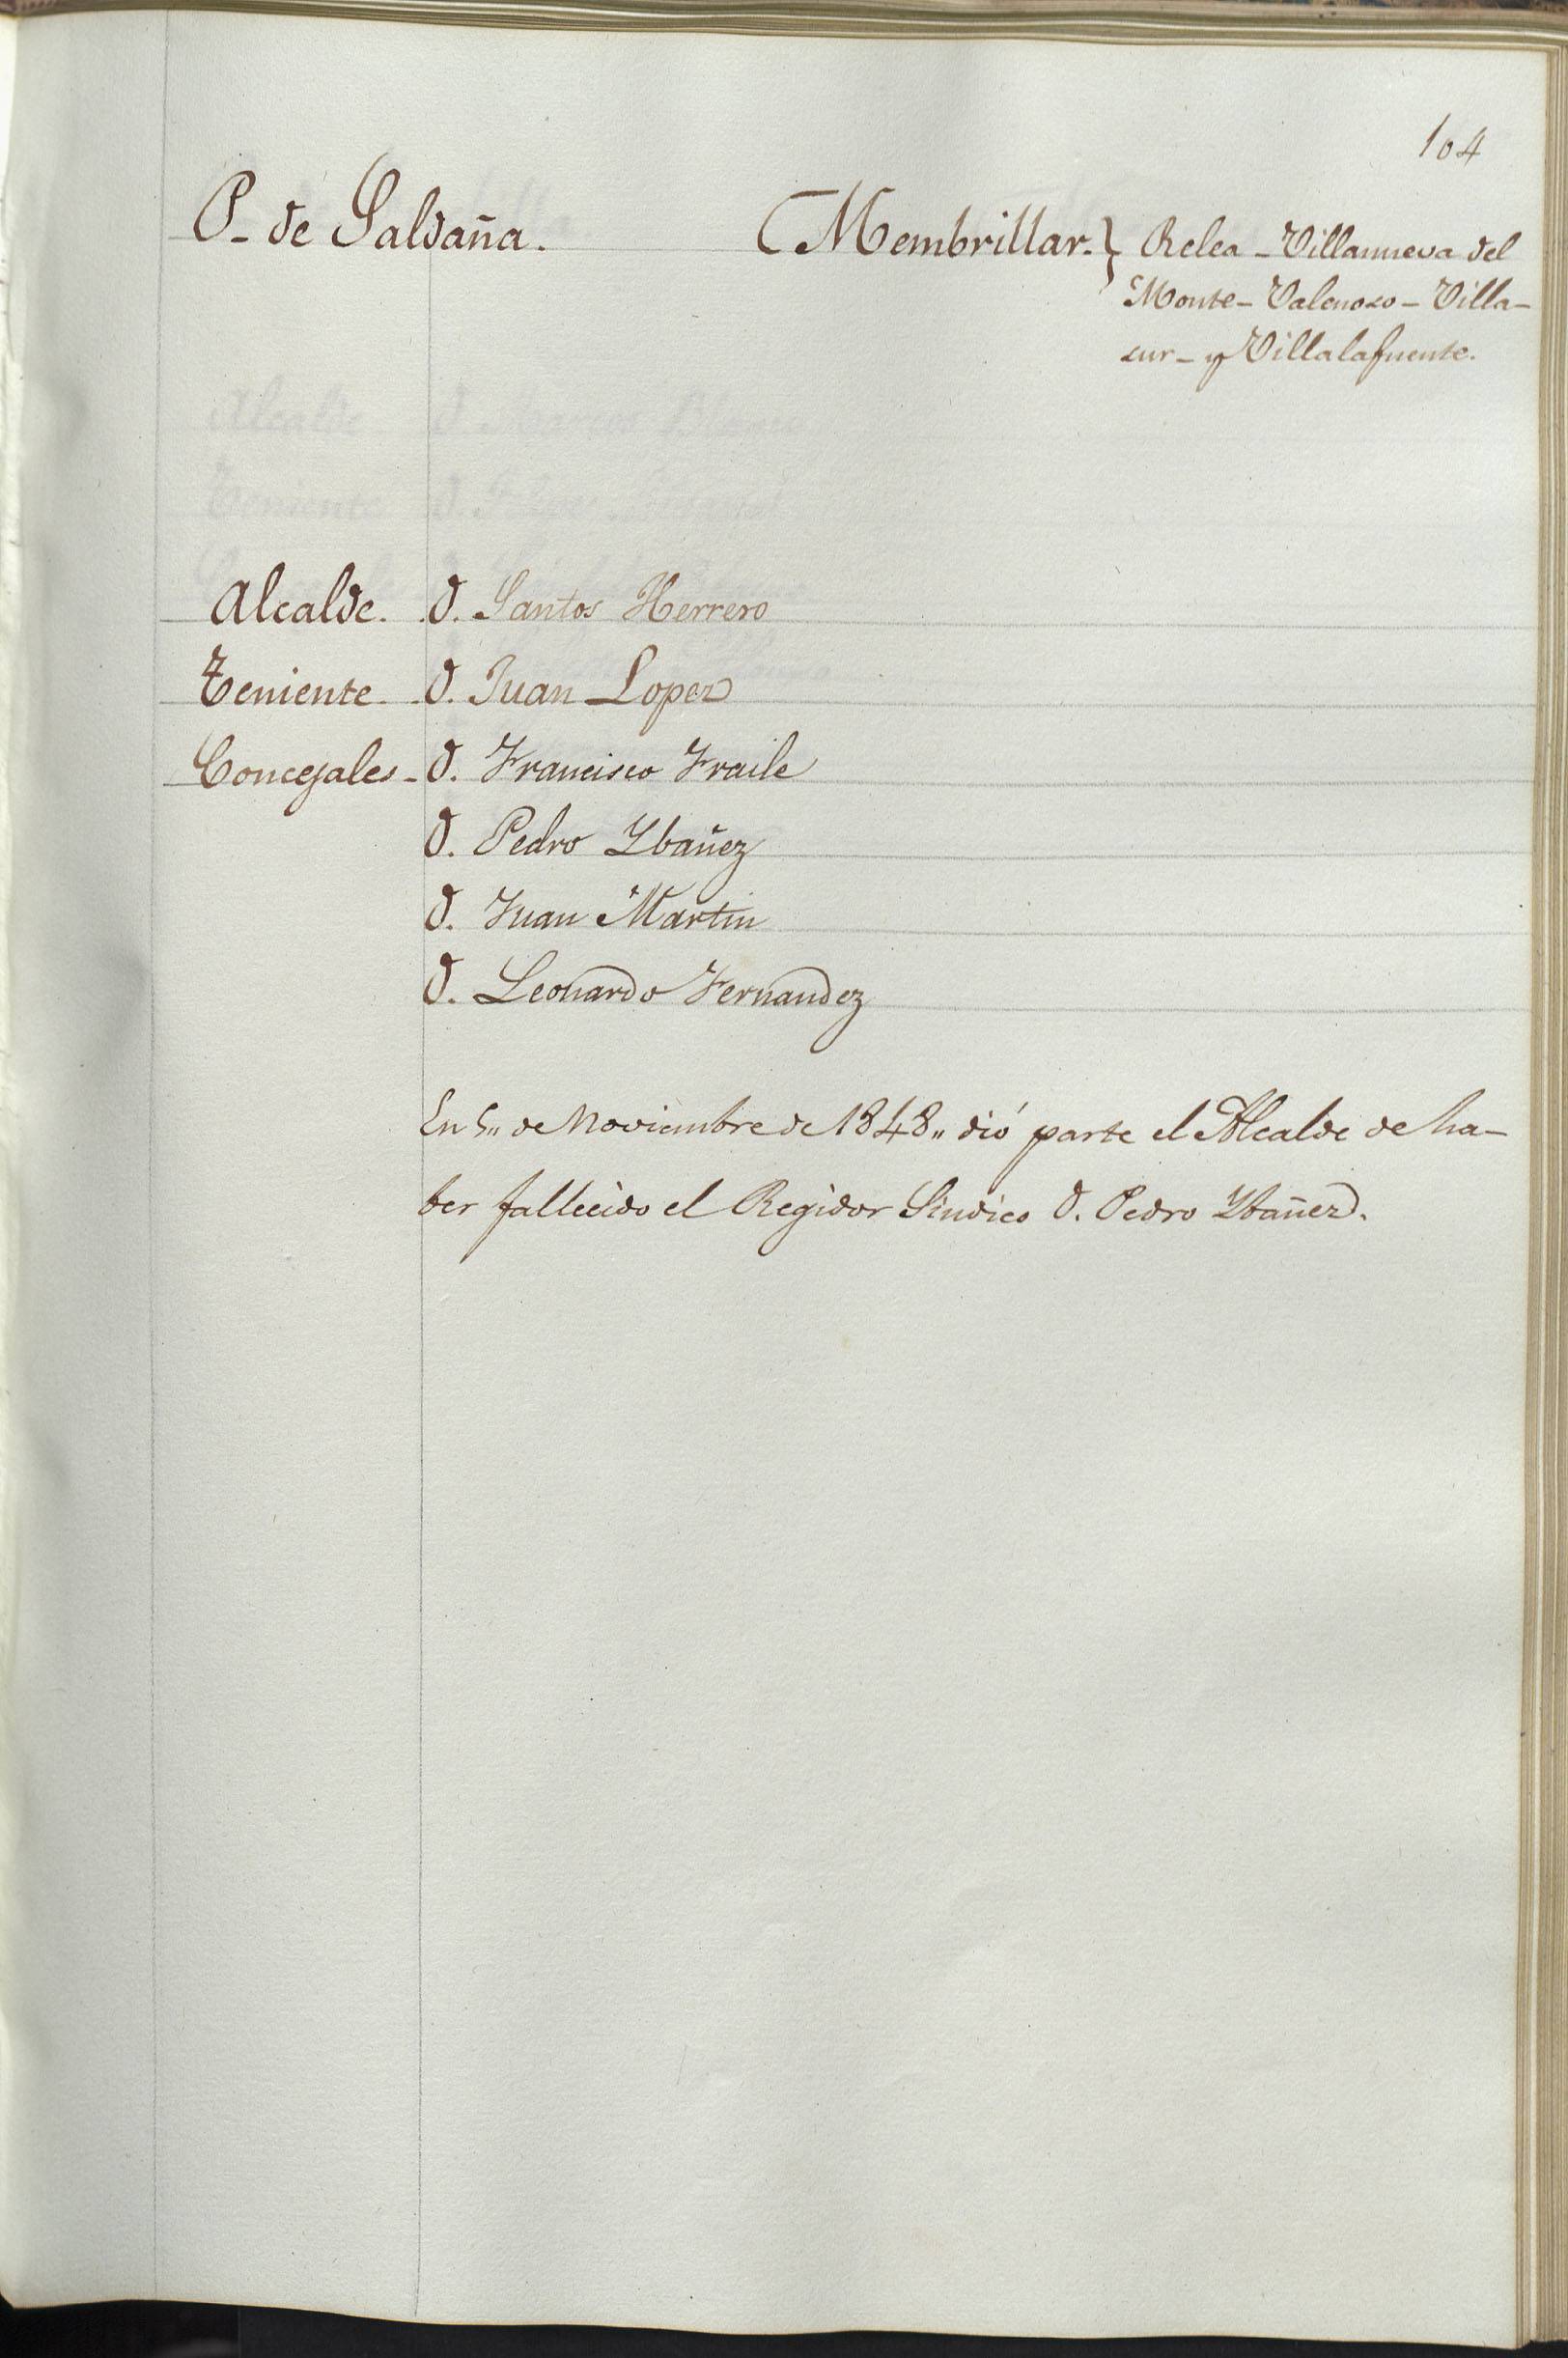 104
P- de Saldaña.
Membrillar. } Relea - Villanueva del
Monte - Valenoso - Villa-
sur - y Villalafuente.
Alcalde. D. Santos Herrero
Teniente D. Juan Lopez
Concejales - D. Francisco Fraile
D. Pedro Ybañez
D. Juan Martin
D. Leonardo Fernandez
En 5,, de Noviembre de 1848,, dió parte el Alcalde de ha-
ber fallecido el Regidor Sindico D. Pedro Ybañez.